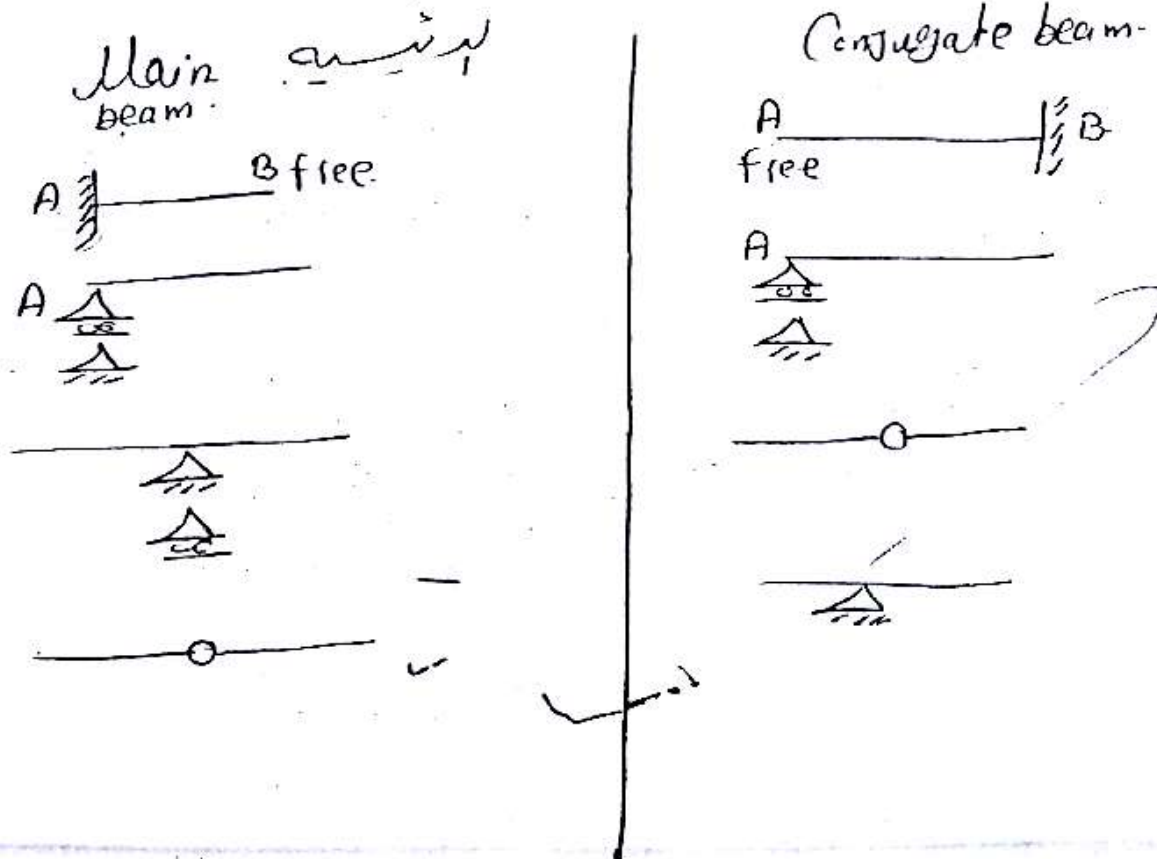 Main
beam.
A B free
A
Conjugate beam.
A B
free
A